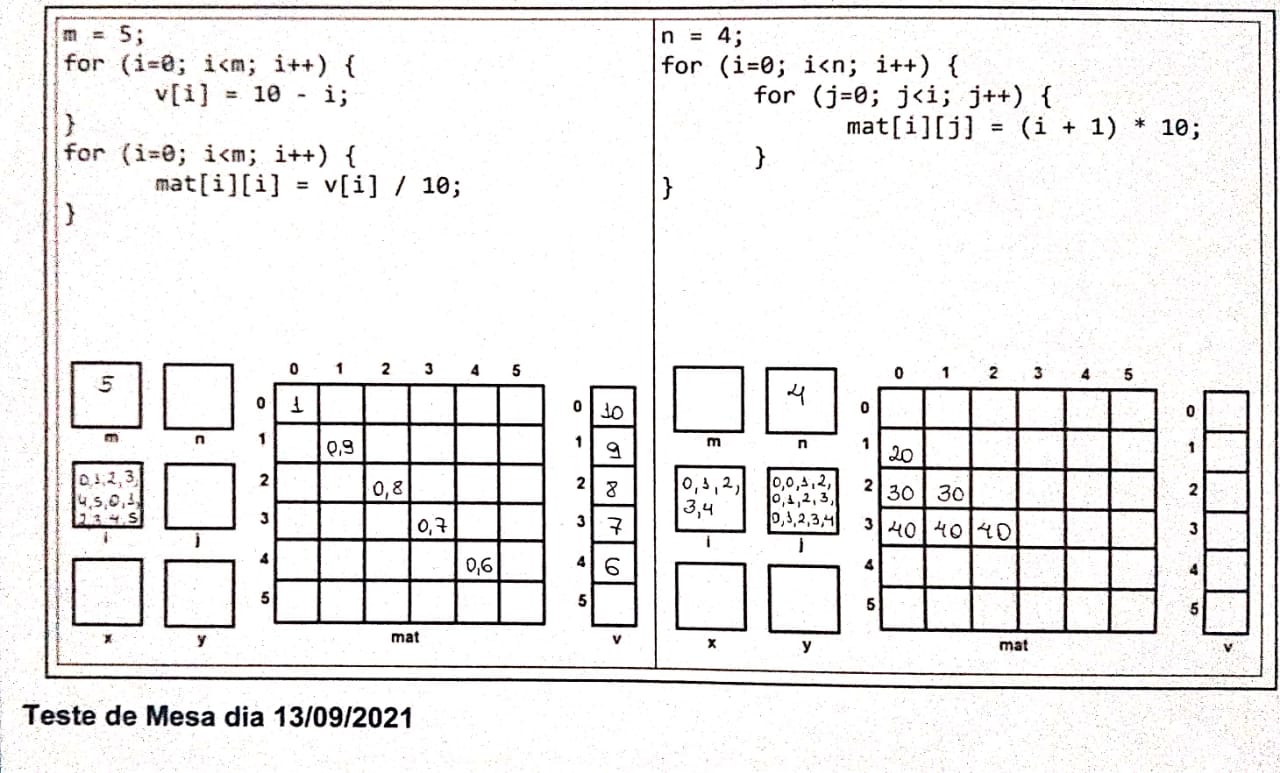 m = 5;
for (i=0; i<m; i++) {
v[i] = 10 - i;
}
for (i=0; i<m; i++) {
mat[i][i] = v[i] / 10;
}
5
m
n
0,1,2,3,
4,5,0,1,
2,3,4,5
i
j
x
y
0 1 2 3 4 5
0 1
1 0,9
2 0,8
3 0,7
4 0,6
5
mat
0 10
1 9
2 8
3 7
4 6
5
v
n = 4;
for (i=0; i<n; i++) {
for (j=0; j<i; j++) {
mat[i][j] = (i + 1) * 10;
}
}
m
4
n
0,1,2,
3,4
i
0,0,1,2,
0,1,2,3,
0,1,2,3,4
j
x
y
0 1 2 3 4 5
0
1 20
2 30 30
3 40 40 40
4
5
mat
0
1
2
3
4
5
v
Teste de Mesa dia 13/09/2021